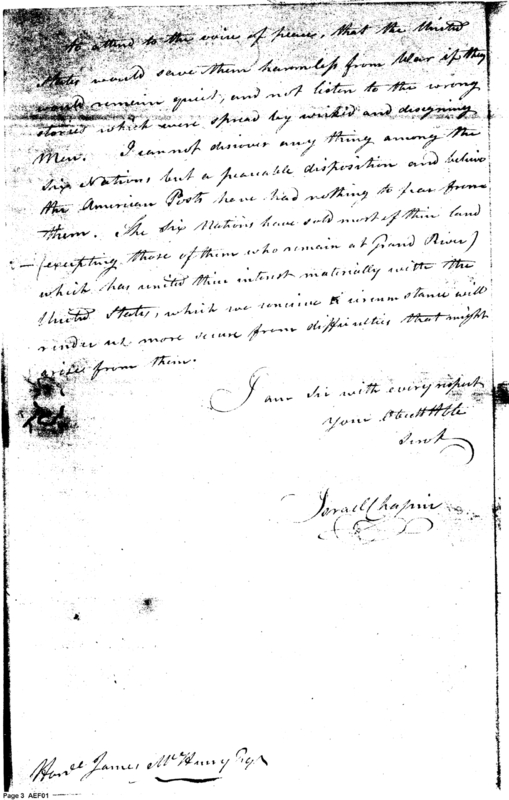 to attend to the voice of peace, that the United
States would save them harmless from War if they
would remain quiet, and not listen to the wrong
stories which were spread by wicked and designing
Men. I cannot discover any thing among the
Six Nations but a peaceable disposition and believe
the American Posts have had nothing to fear from
them. The Six Nations have sold most of their land
(excepting those of them who remain at Grand River)
which has united their interest materially with the
United States, which we conceive circumstance will
render us more secure from difficulties that might
arise from them.
I am Sir with every respect
Your Obedt Hble
Servt
Israel Chapin
Honble James McHenry Esqr
Page 3 AEF01